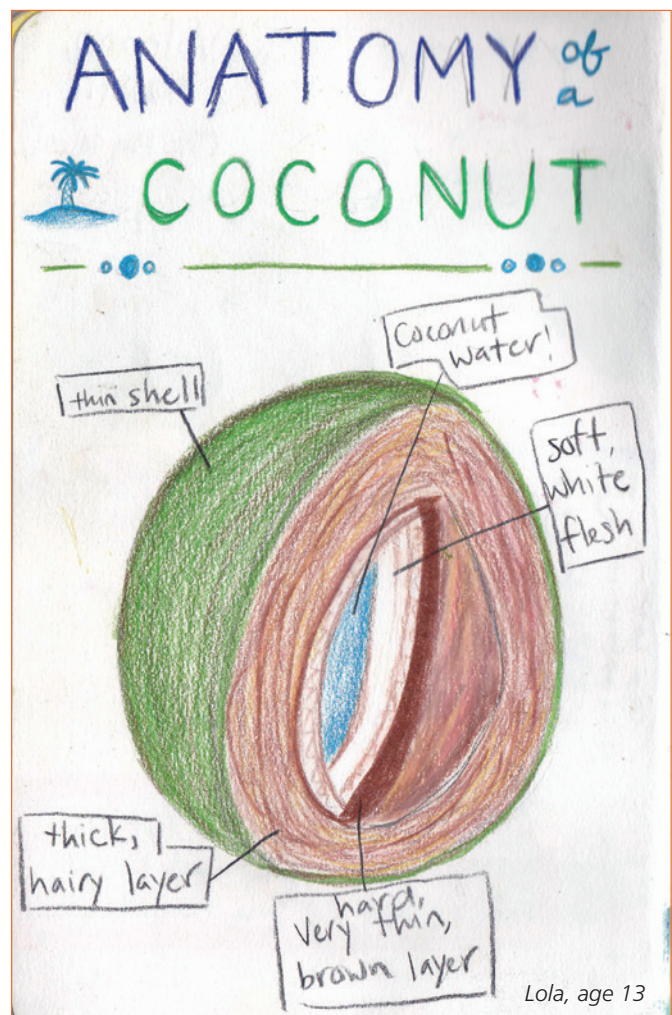 ANATOMY of
a
COCONUT
Coconut
water!
thin shell
soft,
white
flesh
thick,
hairy layer
hard,
very thin,
brown layer
Lola, age 13